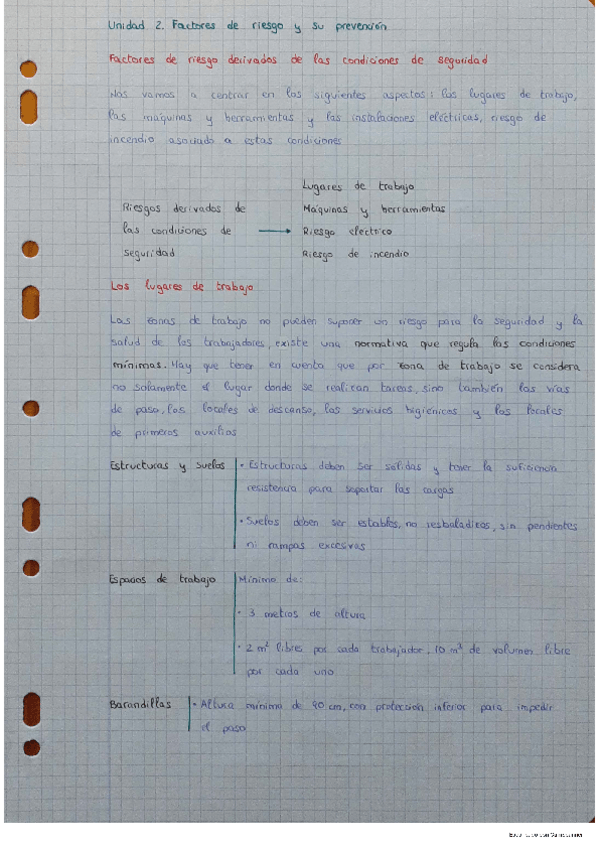 Unidad 2. Factores de riesgo y su prevención
Factores de riesgo derivados de las condiciones de seguridad
Nos vamos a centrar en los siguientes aspectos: los lugares de trabajo,
las máquinas y herramientas y las instalaciones eléctricas, riesgo de
incendio asociado a estas condiciones
Riesgos derivados de
las condiciones de
seguridad
Lugares de trabajo
Máquinas y herramientas
Riesgo eléctrico
Riesgo de incendio
Los lugares de trabajo
Las zonas de trabajo no pueden suponer un riesgo para la seguridad y la
salud de los trabajadores, existe una normativa que regula las condiciones
mínimas. Hay que tener en cuenta que por zona de trabajo se considera
no solamente el lugar donde se realizan tareas, sino también las vías
de paso, los locales de descanso, los servicios higiénicos y los locales
de primeros auxilios
Estructuras y suelos
• Estructuras deben ser sólidas y tener la suficiencia
resistencia para soportar las cargas
• Suelos deben ser estables, no resbaladizos, sin pendientes
ni rampas excesivas
Espacios de trabajo
Mínimo de:
• 3 metros de altura
• 2 m² libres por cada trabajador. 10 m³ de volumen libre
por cada uno
Barandillas
• Altura mínima de 90 cm, con protección inferior para impedir
el paso